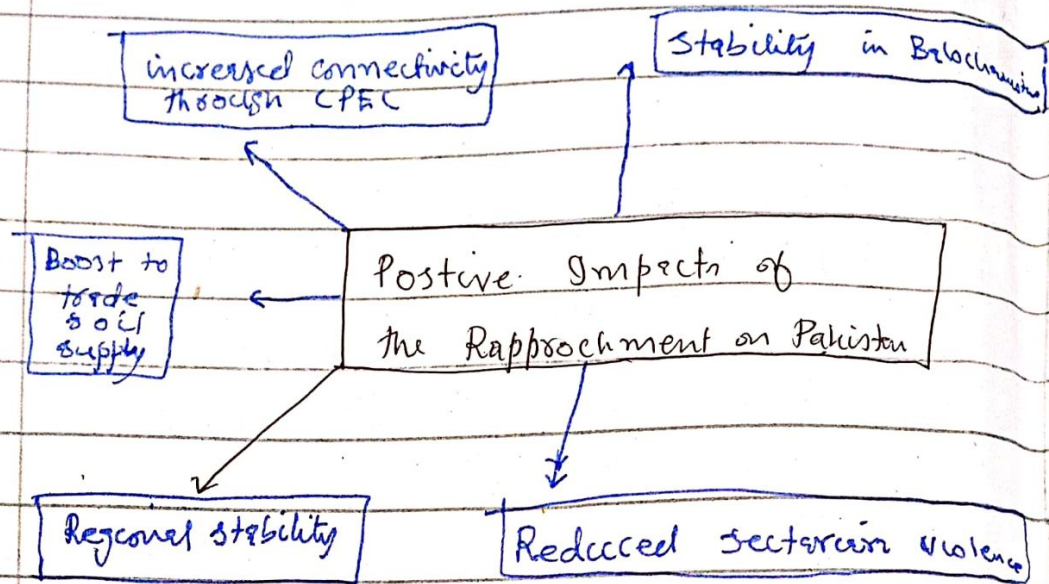 increased connectivity
through CPEC
Stability in Balochistan
Boost to
trade
& oil
supply
Postive Impacts of
the Rapprochment on Pakistan
Regional stability
Reduced sectarian violence